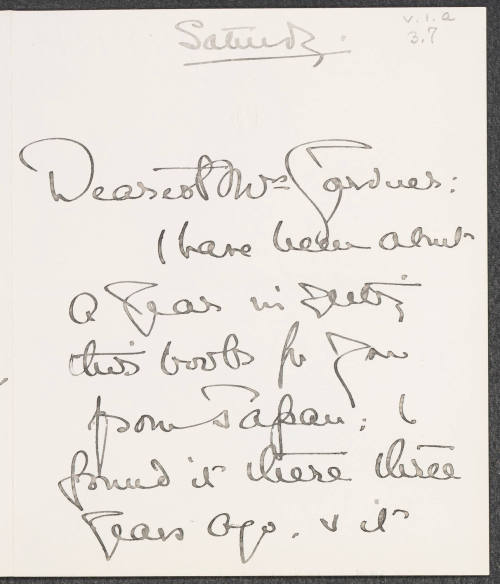 Saturday.
v.1.a
3.7
Dearest Mrs Gardner:
I have been about
a year in getting
this book for you
from Japan; I
found it there three
years ago. & it